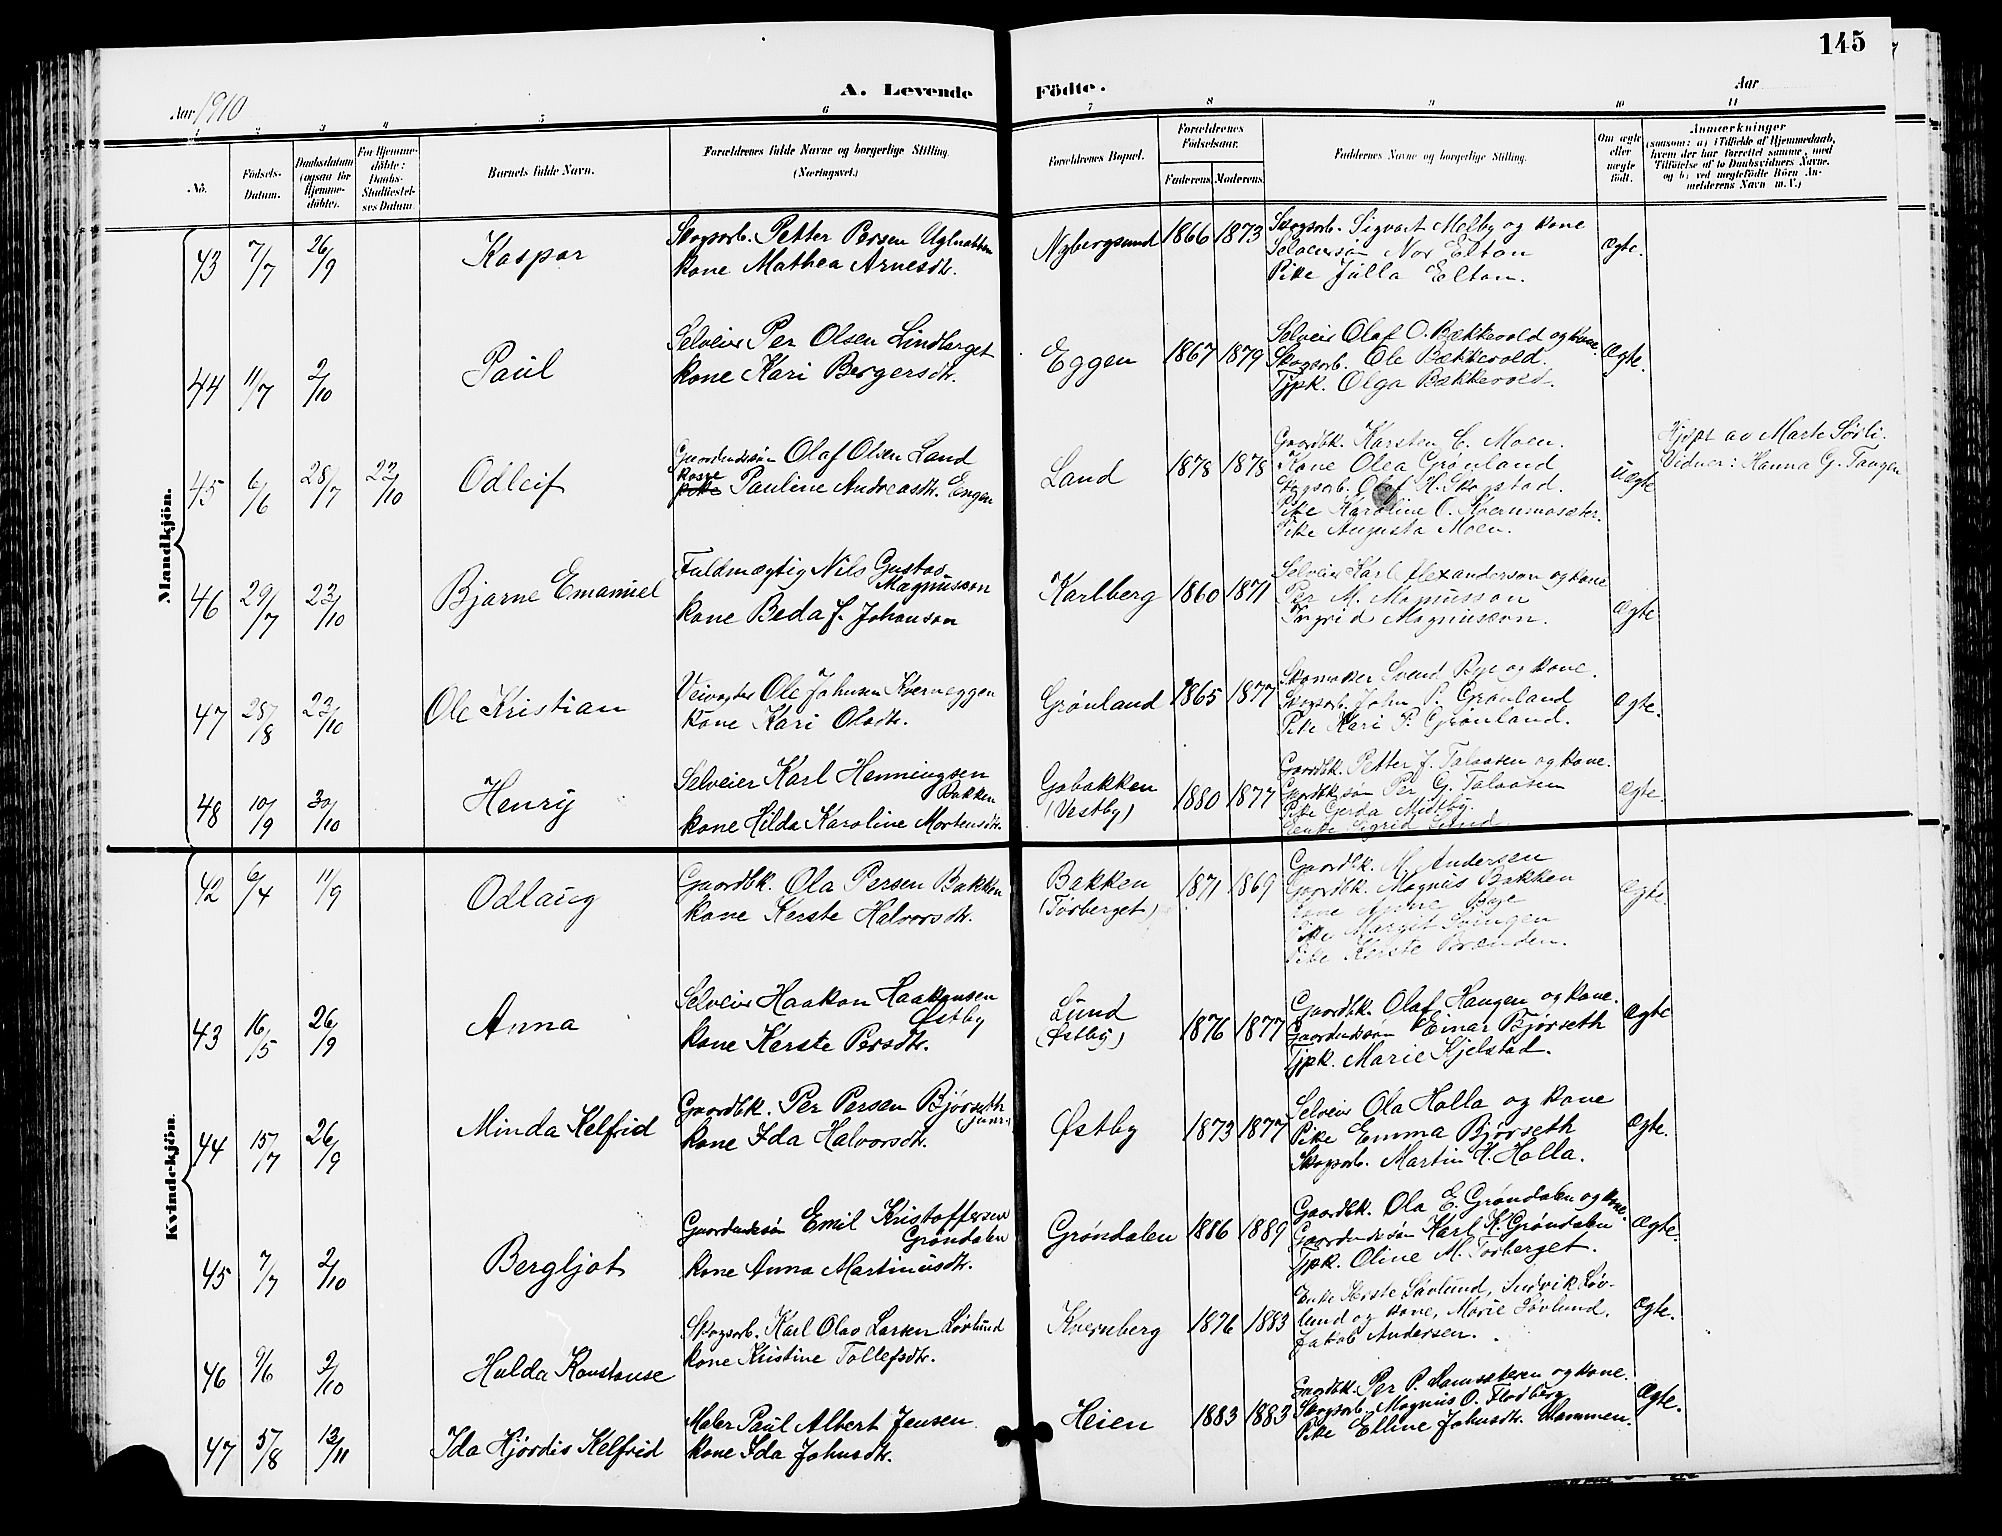 145
A. Levende Födte.
Aar 1910
Aar
1 2 3 4 5 6 7 8 9 10 11
No.
Födsels-Datum.
Daabsdatum (ogsaa for Hjemme-döbte).
For Hjemme-döbte: Daabs-Stadfæstel-ses Datum
Barnets fulde Navn.
Forældrenes fulde Navne og borgerlige Stilling. (Næringsvei.)
Forældrenes Bopæl.
Forældrenes Födselsaar.
Faderens. Moderens.
Faddernes Navne og borgerlige Stilling.
Om ægte eller uægte födt.
Anmærkninger
(saasom: a) i Tilfælde af Hjemmedaab,
hvem der har forrettet samme, med
Tilföielse af to Daabsvidners Navne.
og b) ved uægtefödte Börn An-
melderens Navn m. V.)
Mandkjön.
43 7/7 26/9 Kaspar
Skogsarb. Petter Persen Uglnabben
kone Mathea Arnesdtr.
Nybergsund 1866 1873
Skogsarb. Sigvart Melby og kone
Selveiersøn Nor Elton
Pike Julla Elton.
Ægte.
44 11/7 2/10 Paul
Selveier Per Olsen Lindberget
kone Kari Bergersdtr.
Eggen 1867 1879
Selveier Olaf O. Bækkevold og kone.
Skogsarb. Ole Bækkevold.
Tjpk. Olga Bækkevold.
Ægte.
45 6/6 28/7 23/10 Odleif
Gaardmdssøn Olaf Olsen Land
kone
pike Pauline Andreasdtr. Engen
Land 1878 1878
Gaardbk. Karsten E. Moen.
Kone Olea Grønland
Skogsarb. Olaf H. Skogstad.
Pike Karoline O. Kvernmosæter.
Pike Augusta Moen.
Uægte
Hjdpt av Marte Sørli.
Vidner: Hanna G. Tangen
46 29/7 23/10 Bjarne Emanuel
Fuldmægtig Nils Gustav
Magnusson
kone Beda J. Johanson
Karlberg 1860 1871
Selveier Karl Alexanderson og kone
Per M. Magnusson
Ingrid Magnusson.
Ægte.
47 28/8 23/10 Ole Kristian
Veivogter Ole Johnsen Kverneggen
kone Kari Olsdtr.
Grønland 1865 1877
Skomaker Svend Bye og kone.
Skogsarb. John P. Grønland
Pike Kari P. Grønland.
Ægte.
48 10/9 30/10 Henry
Selveier Karl Henningsen
Bakken
kone Hilda Karoline Mortensdtr.
Gobakken
(Vestby) 1880 1877
Gaardbk. Petter J. Talaasen og kone.
Gaardbksøn Per G. Talaasen
Pike Gerda Midtby.
Enke Sigrid Lund
Ægte.
Kvindekjön.
42 6/4 11/9 Odlaug
Gaardbk. Ola Persen Bakken
kone Kerste Halvorsdtr.
Bakken
(Tørberget) 1871 1869
Gaardbk. M. Andersen
Gaardbk. Magnus Bakken
Kone Bye
Pike Margit
Pike Kerste Brænden.
Ægte.
43 16/5 26/9 Anna
Selveier Haakon Haakonsen
Østby
kone Kerste Persdtr.
Lund
(Østby) 1876 1877
Gaardbk. Olaf Haugen og kone.
Gaardmdssøn Einar Bjørseth
Tjpk. Marie Kjelstad.
Ægte
44 15/7 26/9 Minda Kelfrid
Gaardbk. Per Persen Bjørseth
(junr.)
kone Ida Halvorsdtr.
Østby 1873 1877
Selveier Ola Holla og kone
Pike Emma Bjørseth
Skogsarb. Martin H. Holla.
Ægte.
45 7/7 2/10 Bergljot
Gaardmdssøn Emil Kristoffersen
Grøndalen
kone Anna Martinusdtr.
Grøndalen 1886 1889
Gaardbk. Ola E. Grøndalen og kone.
Gaardmdssøn Karl K. Grøndalen
Tjpk. Oline M. Tørberget.
Ægte.
46 9/6 2/10 Hulda Konstanse
Skogsarb. Karl Olav Larsen Løvlund
kone Kristine Tollefsdtr.
Kvernberg 1876 1883
Enke Kerste Løvlund, Ludvik Løv-
lund og kone, Marie Løvlund.
Jakob Andersen.
Ægte.
47 5/8 13/11 Ida Hjørdis Kelfrid
Maler Paul Albert Jensen
kone Ida Johnsdtr.
Heien 1883 1883
Gaardbk. Per P. og kone.
Skogsarb. Magnus O. Flodberg
Pike Elline Johnsdtr. Slammen.
Ægte.